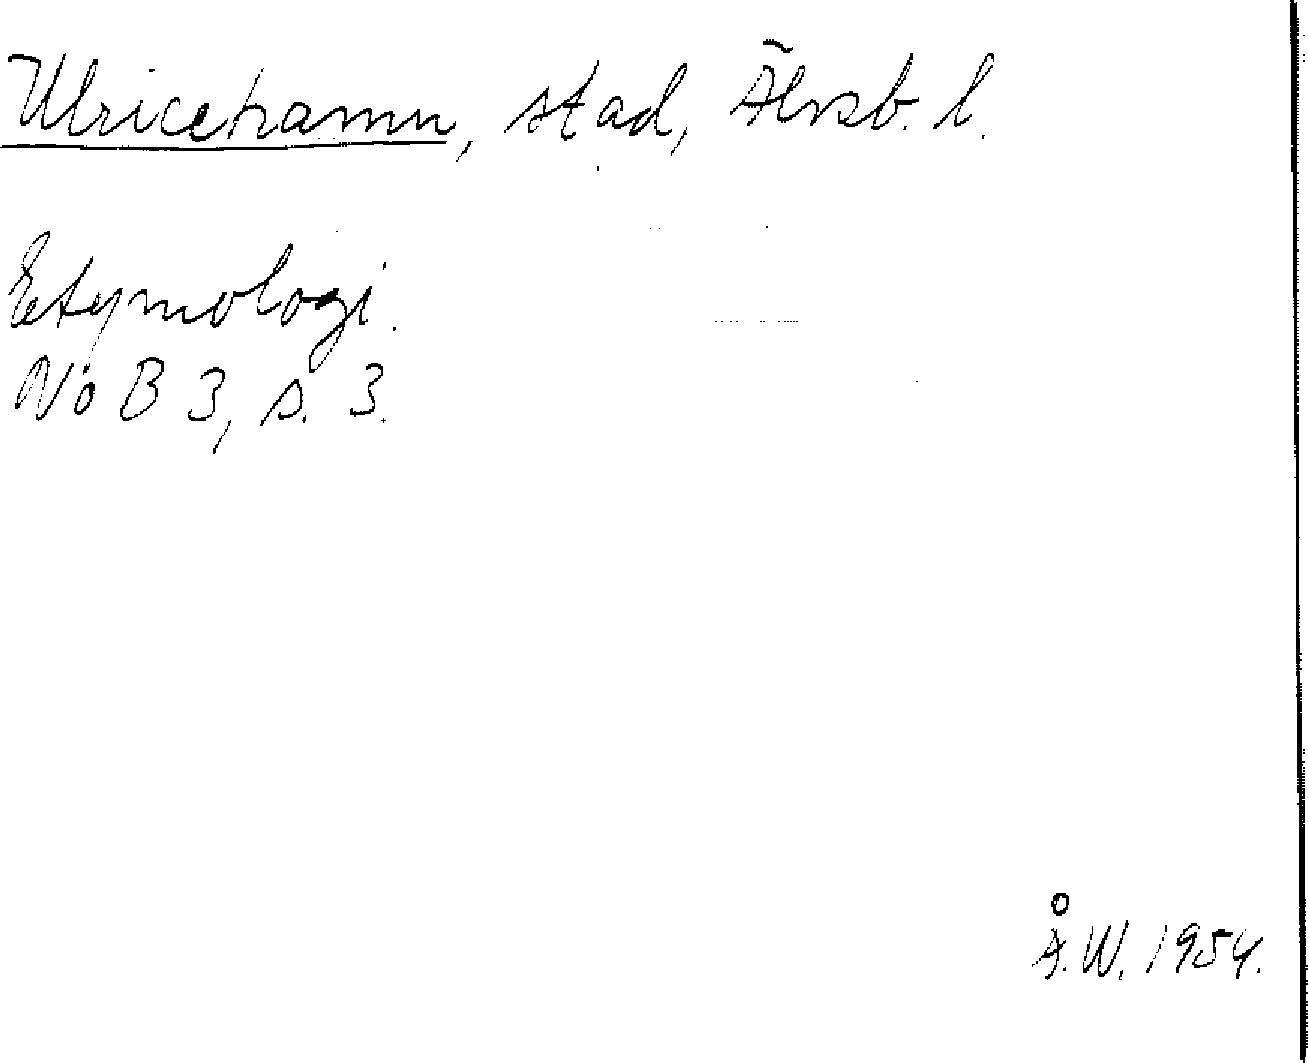 Ulricehamn, stad, Älvsb. l.
Etymologi.
NoB 3, s. 3.
Å.W. 1954.